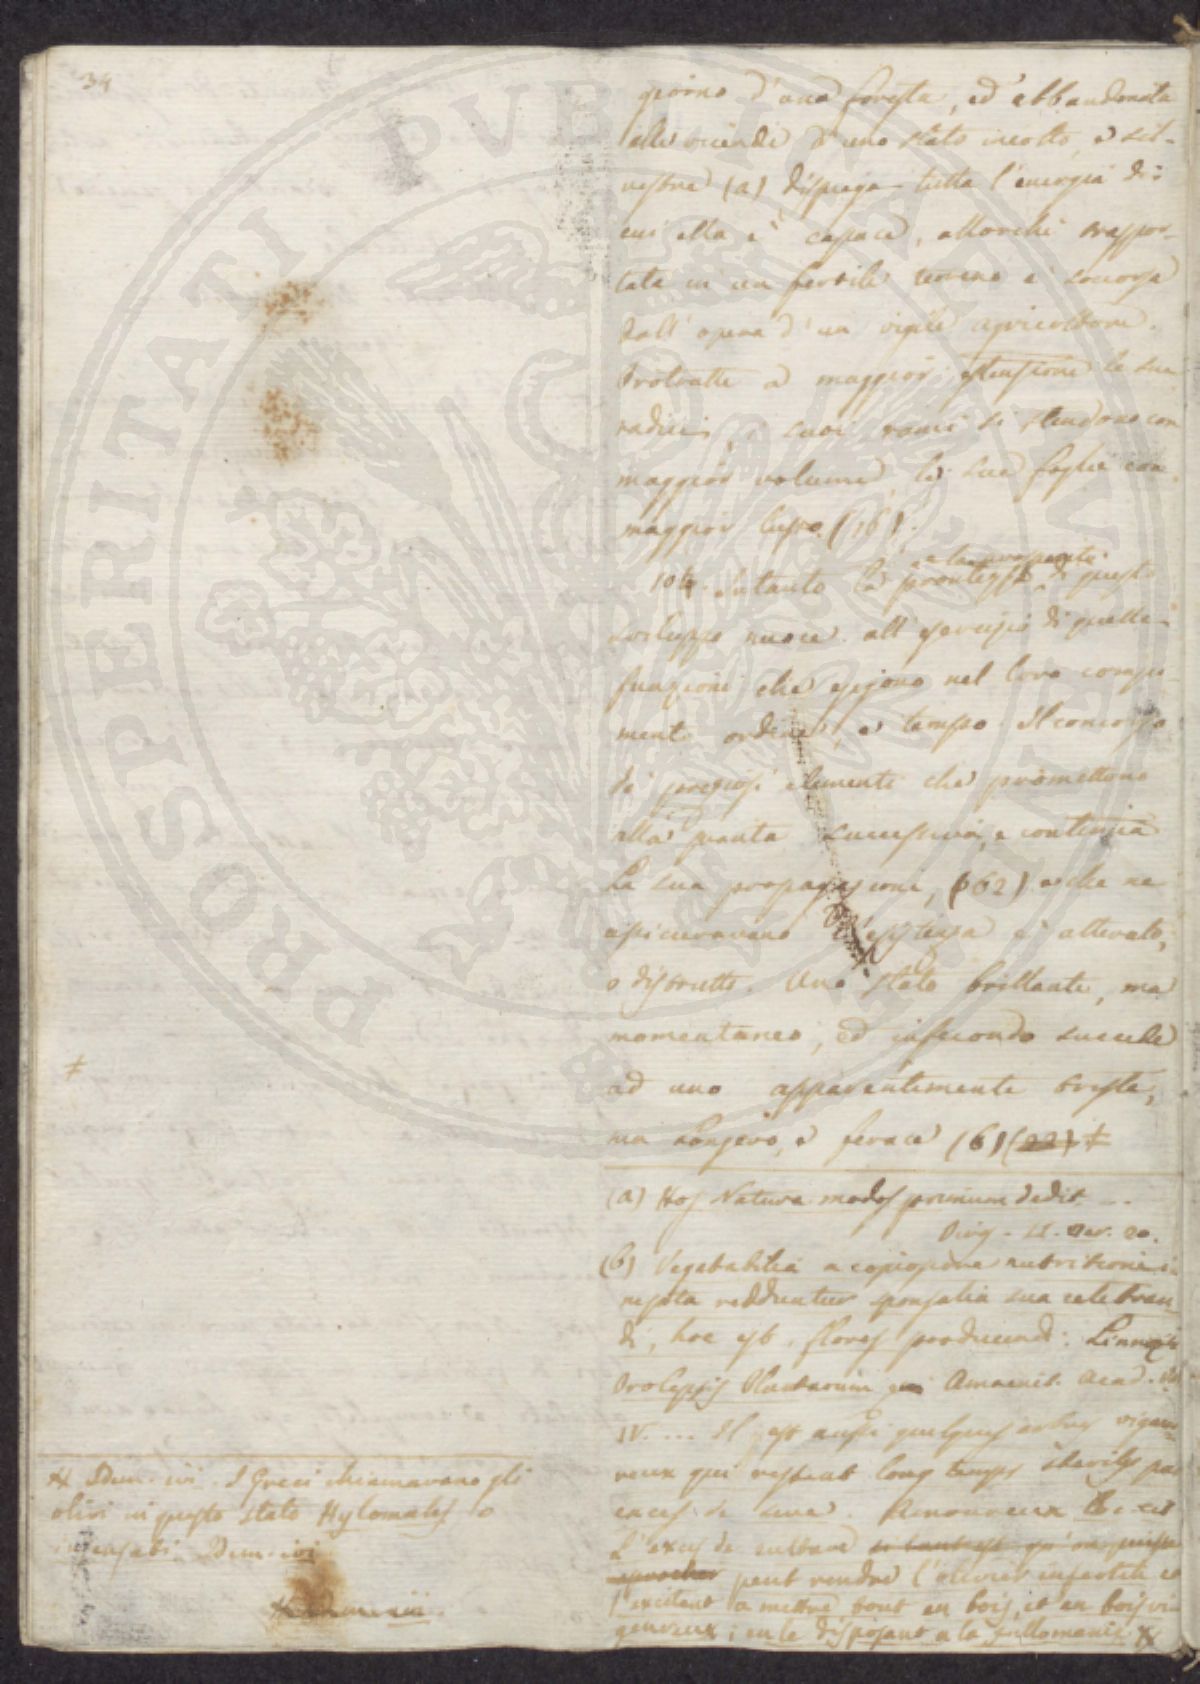 34
giorno d'una foresta, ed abbandonata
alle vicende d'uno stato incolto, e sil-
vestre (a) dispiega tutta l'energia di
cui ella è capace, allorchè trappor-
tata in un fertile terreno è soccorsa
dall'opera d'un vigile agricoltore.
Protratte a maggior estensione le sue
radici, i suoi rami si stendono con
maggior volume, le sue foglie con
maggior lusso (16).
e la prosperità
104. Intanto la prontezza di questo
sviluppo nuoce all'esercizio di quelle
funzioni che esigono nel loro compi-
mento ordine, e tempo. Il concorso
di preziosi elementi che promettono
alla pianta successiva, e continua
la sua propagazione, (62) e che ne
assicuravano l'esistenza è alterato,
o distrutto. Uno stato brillante, ma
momentaneo, ed infecondo succede
ad uno apparentemente triste,
ma longevo, e ferace (b) (22) ‡
‡
(a) Hos Natura modos primum dedit ...
Virg. II. ver. 20.
(b) Vegetabilia a copiosiore nutritione
redduntur sponsalia sua celebran-
di, hoc est, flores producendi: Linnei
Prolepsis Plantarum Amaenit. Acad.
IV. ... Il est aussi quelques arbres vigou-
reux qui restent long temps steriles par
exces de seve. Amoureux
L'exces de culture si tant est qu'on puisse
peut rendre l'olivier infertile et
l'excitant a mettre tout en bois, et en bois vi-
goureux; en le disposant a la fullomanie #
# Idem. ivi. I Greci chiamavano gli
olivi in questo stato Hylomates o
insensati Idem. ivi